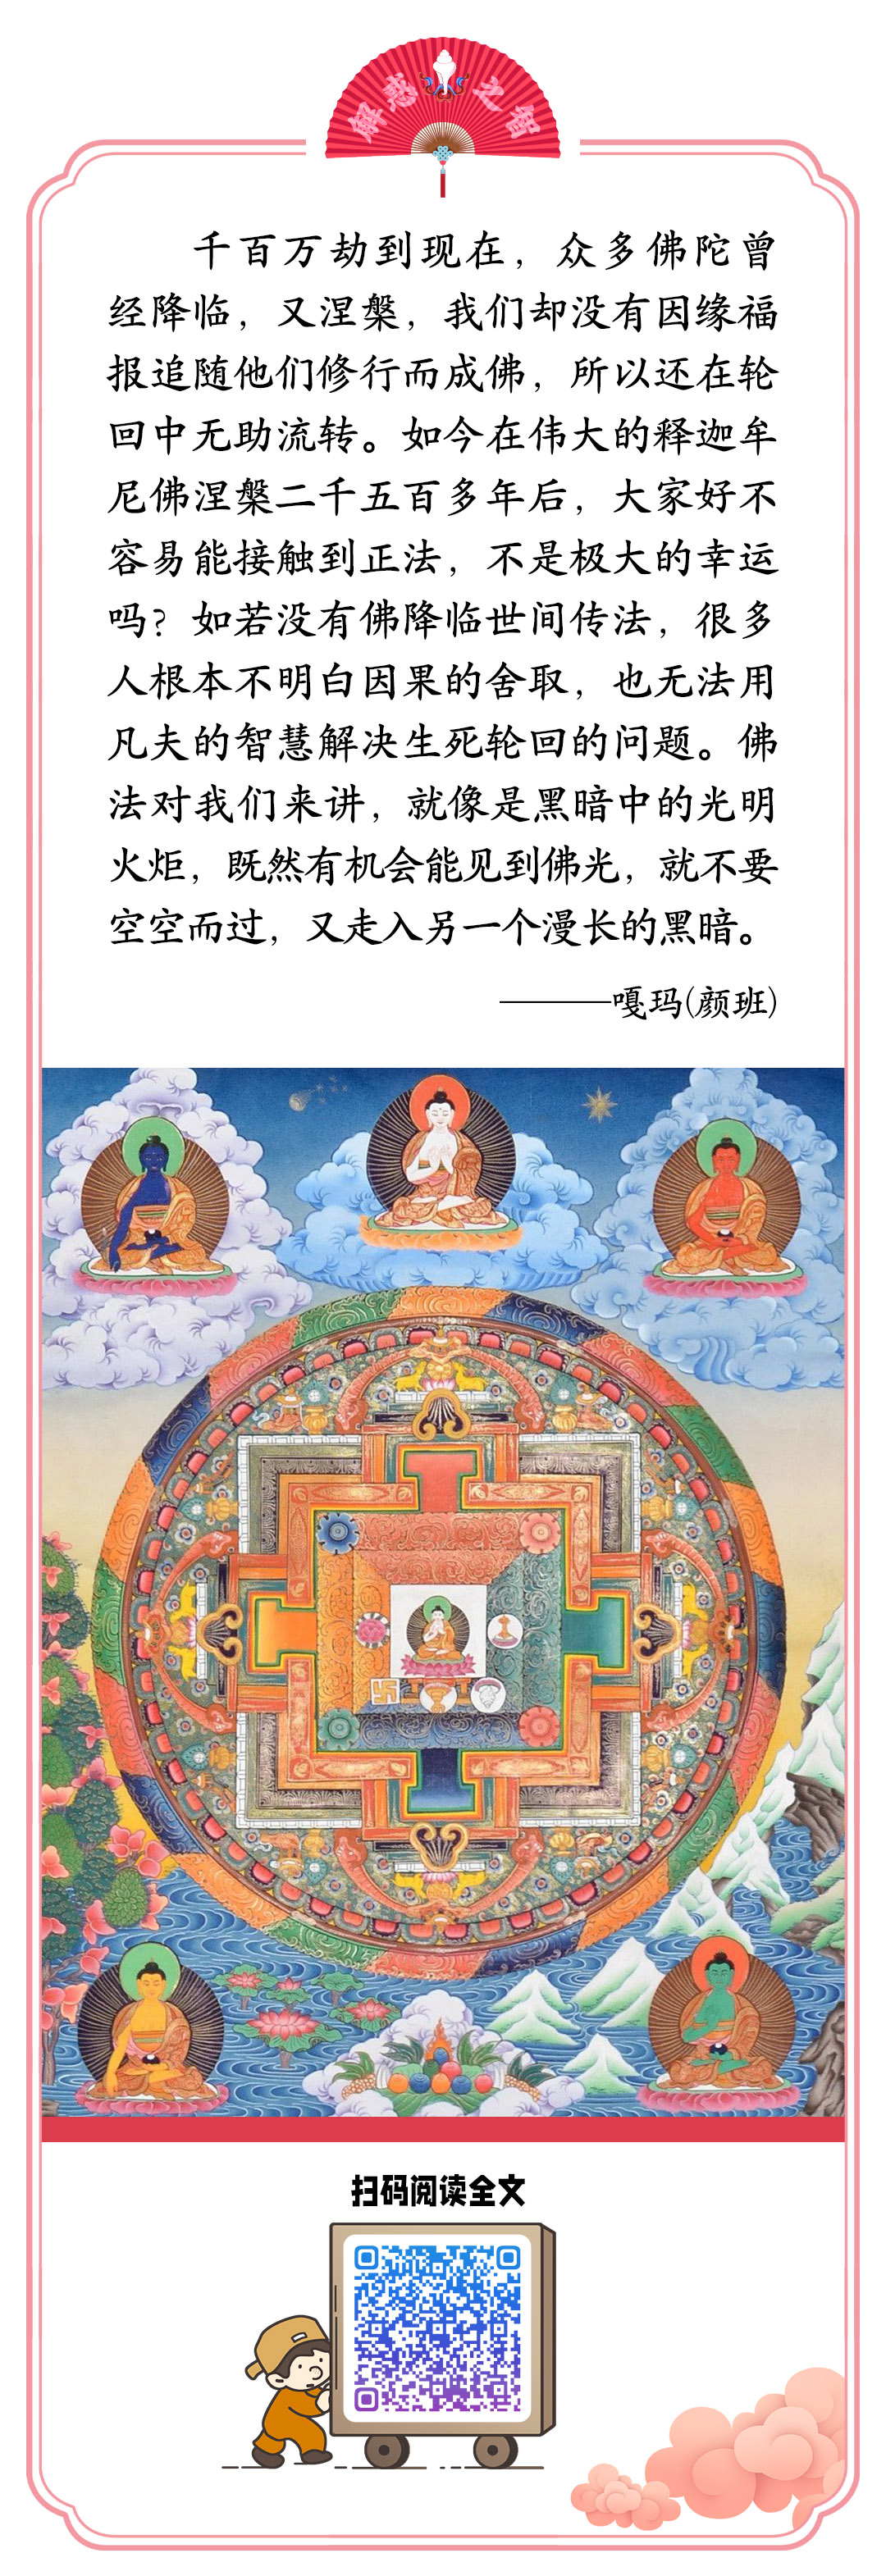 解惑之智
千百万劫到现在，众多佛陀曾
经降临，又涅槃，我们却没有因缘福
报追随他们修行而成佛，所以还在轮
回中无助流转。如今在伟大的释迦牟
尼佛涅槃二千五百多年后，大家好不
容易能接触到正法，不是极大的幸运
吗？如若没有佛降临世间传法，很多
人根本不明白因果的舍取，也无法用
凡夫的智慧解决生死轮回的问题。佛
法对我们来讲，就像是黑暗中的光明
火炬，既然有机会能见到佛光，就不要
空空而过，又走入另一个漫长的黑暗。
———嘎玛(颜班)
扫码阅读全文